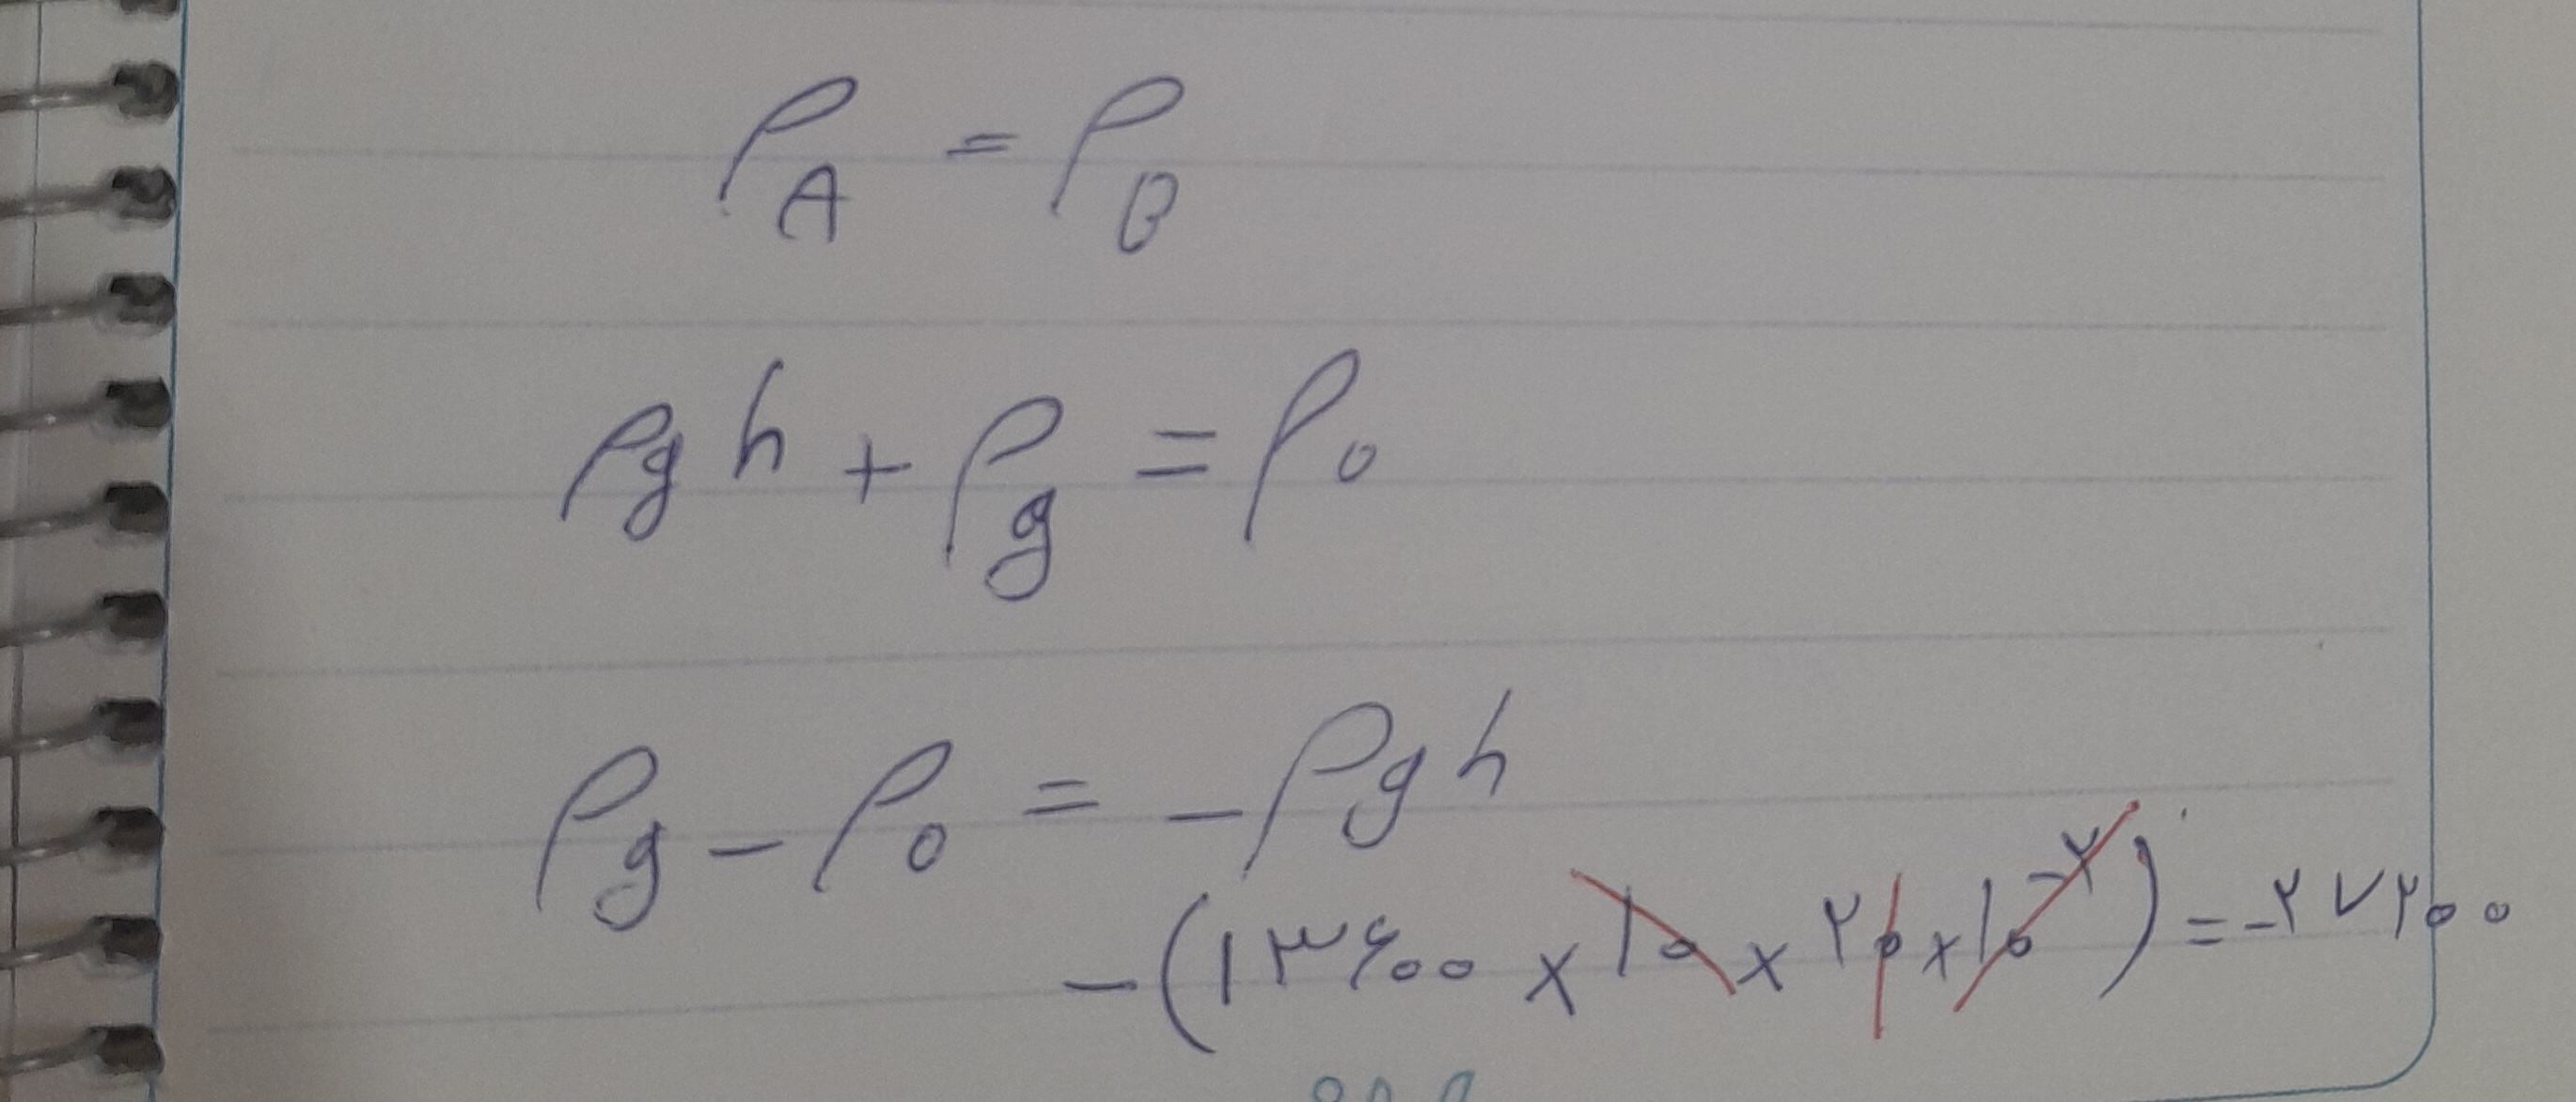 P_A = P_B
ρgh + P_g = P_0
P_g - P_0 = -ρgh
-(۱۳۶۰۰ × ۱۰ × ۲۰ × ۱۰^-۲) = -۲۷۲۰۰